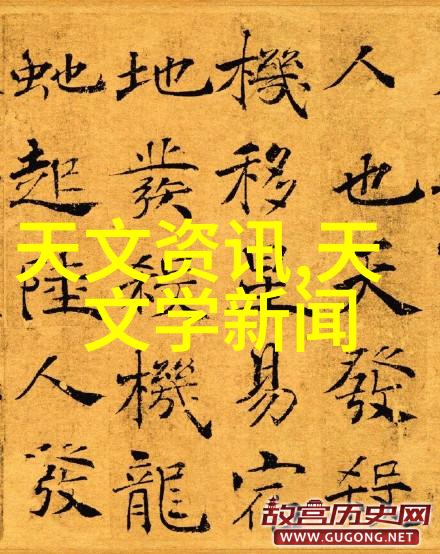 人也天發殺
機移星易宿
地發殺機龍
虵起陸人發
天文资讯,天
文学新闻
故宫历史网
WWW.GUGONG.NET